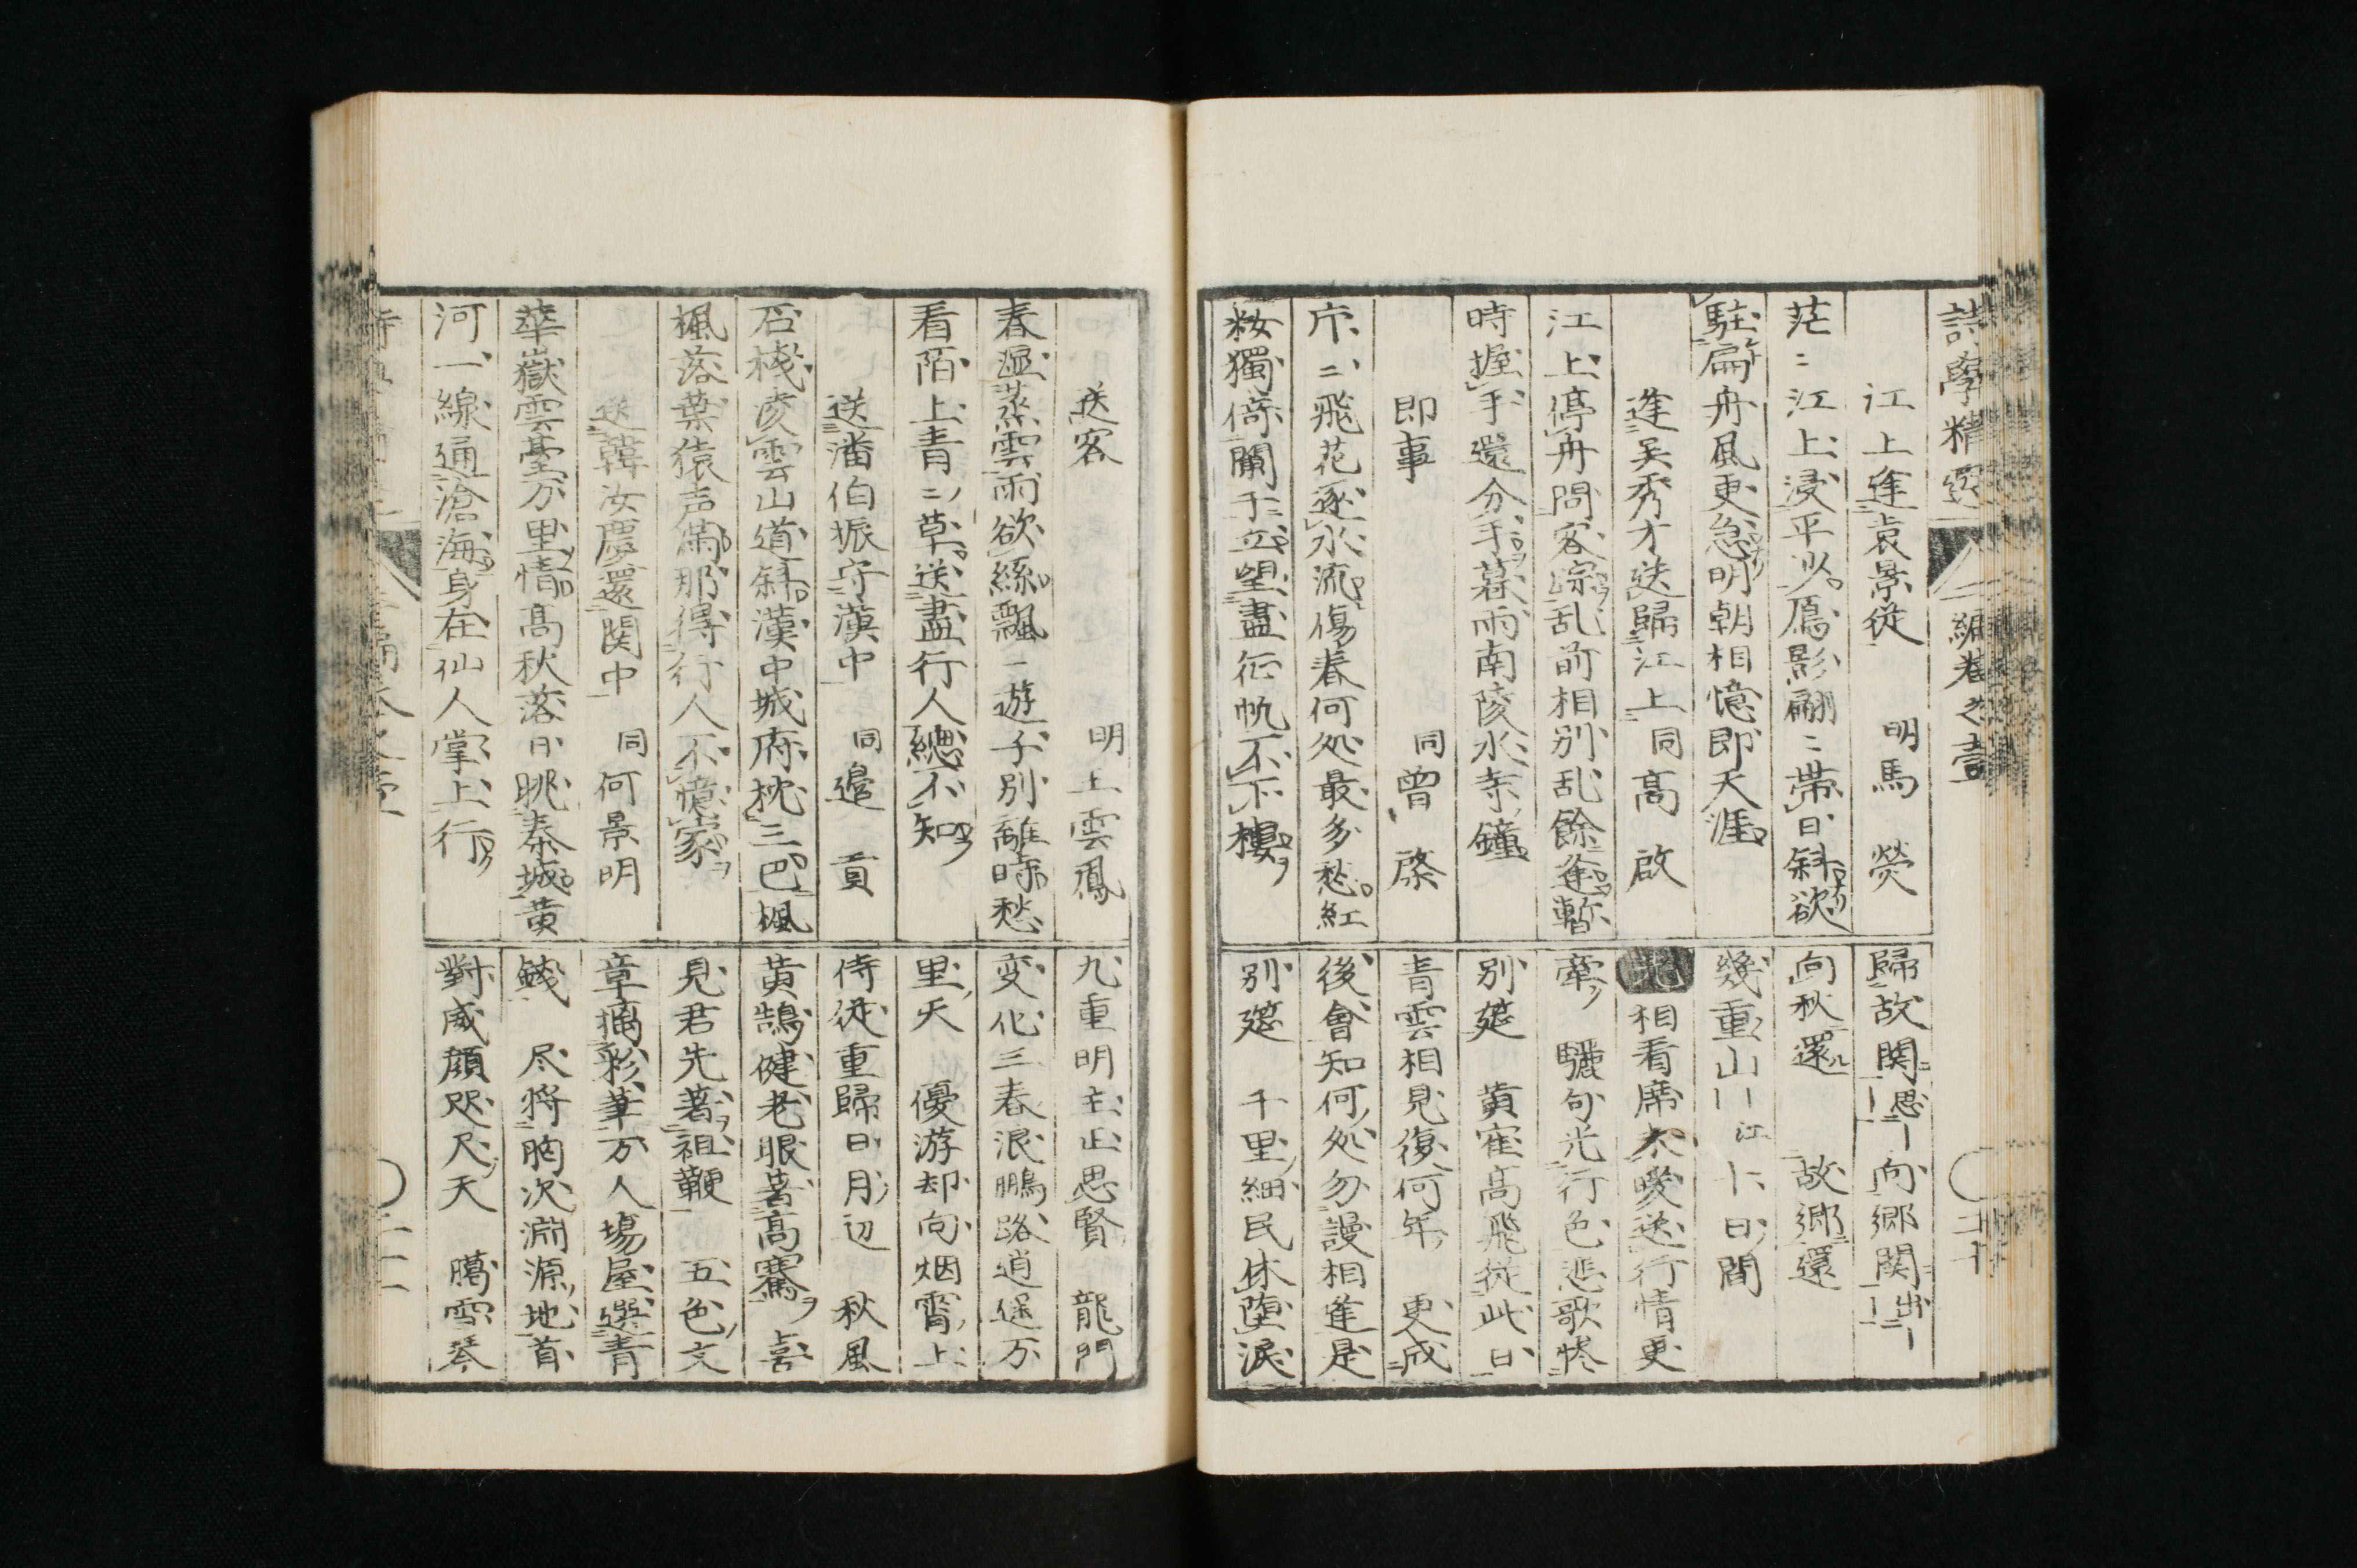 詩學精選 二編卷之壹
江上逢袁景從 明馬 熒
茫〻江上浸平沙鴈影翩〻帶日斜欲
駐扁舟風更急明朝相憶即天涯
逢吴秀才送歸江上 同高 啟
江上停舟問客踪乱前相別乱餘逢暫
時握手還分手暮雨南陵水寺鐘
即事 同曾 棨
片〻飛花逐水流傷春何処最多愁紅
粧獨倚闌干立望盡征帆不下樓
歸故関 思｜｜ 向郷関 出｜｜
向秋還 故郷還
幾重山｜｜ 江上日間
相看席太曖送行情更
牽 驪句光行色悲歌惨
別筵 黄寉高飛從此日
青雲相見復何年 更成
後會知何処勿謾相逢是
別筵 千里細民休堕涙
送客 明 土雲鳳
春溫蒸雲雨欲絲飄〻遊子別離時愁
看陌上青〻草送盡行人緫不知
送潘伯振守漢中 同邉 貢
石棧凌雲山道斜漢中城府枕三巴楓
楓落葉猿声滿那得行人不憶家
送韓汝慶還関中 同何景明
華嶽雲臺万里情高秋落日眺秦城黄
河一線通滄海身在仙人掌上行
九重明主正思賢 龍門
変化三春浪鵬路逍遥万
里天 優游却向烟霄上
侍從重歸日月辺 秋風
黄鵠健老眼喜高騫 喜
見君先著祖鞭 五色文
章摛彩筆万人場屋選青
錢 尽将胸次淵源地首
對威顔咫尺天 臈雪琴